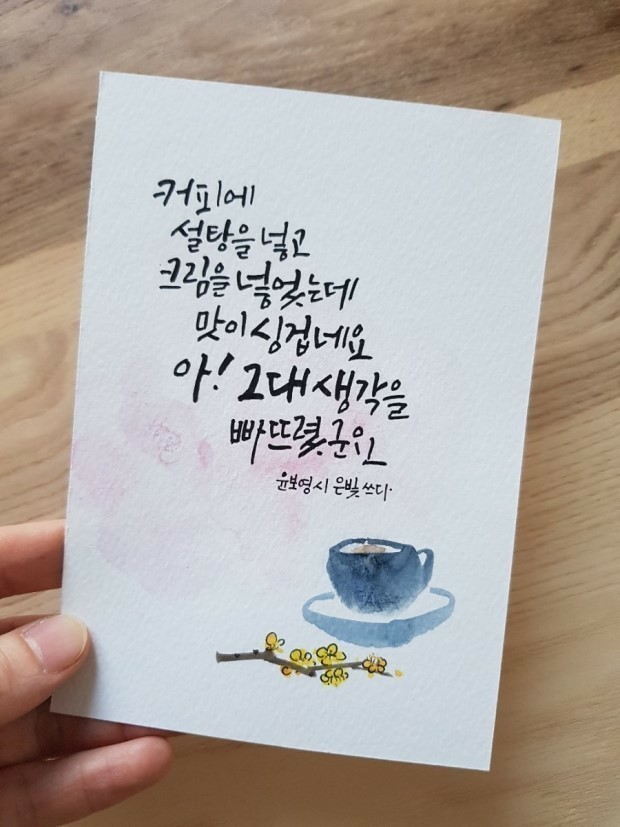 커피에
설탕을 넣고
크림을 넣었는데
맛이 싱겁네요
아! 그대 생각을
빠뜨렸군요
윤보영 시 은빛 쓰다.